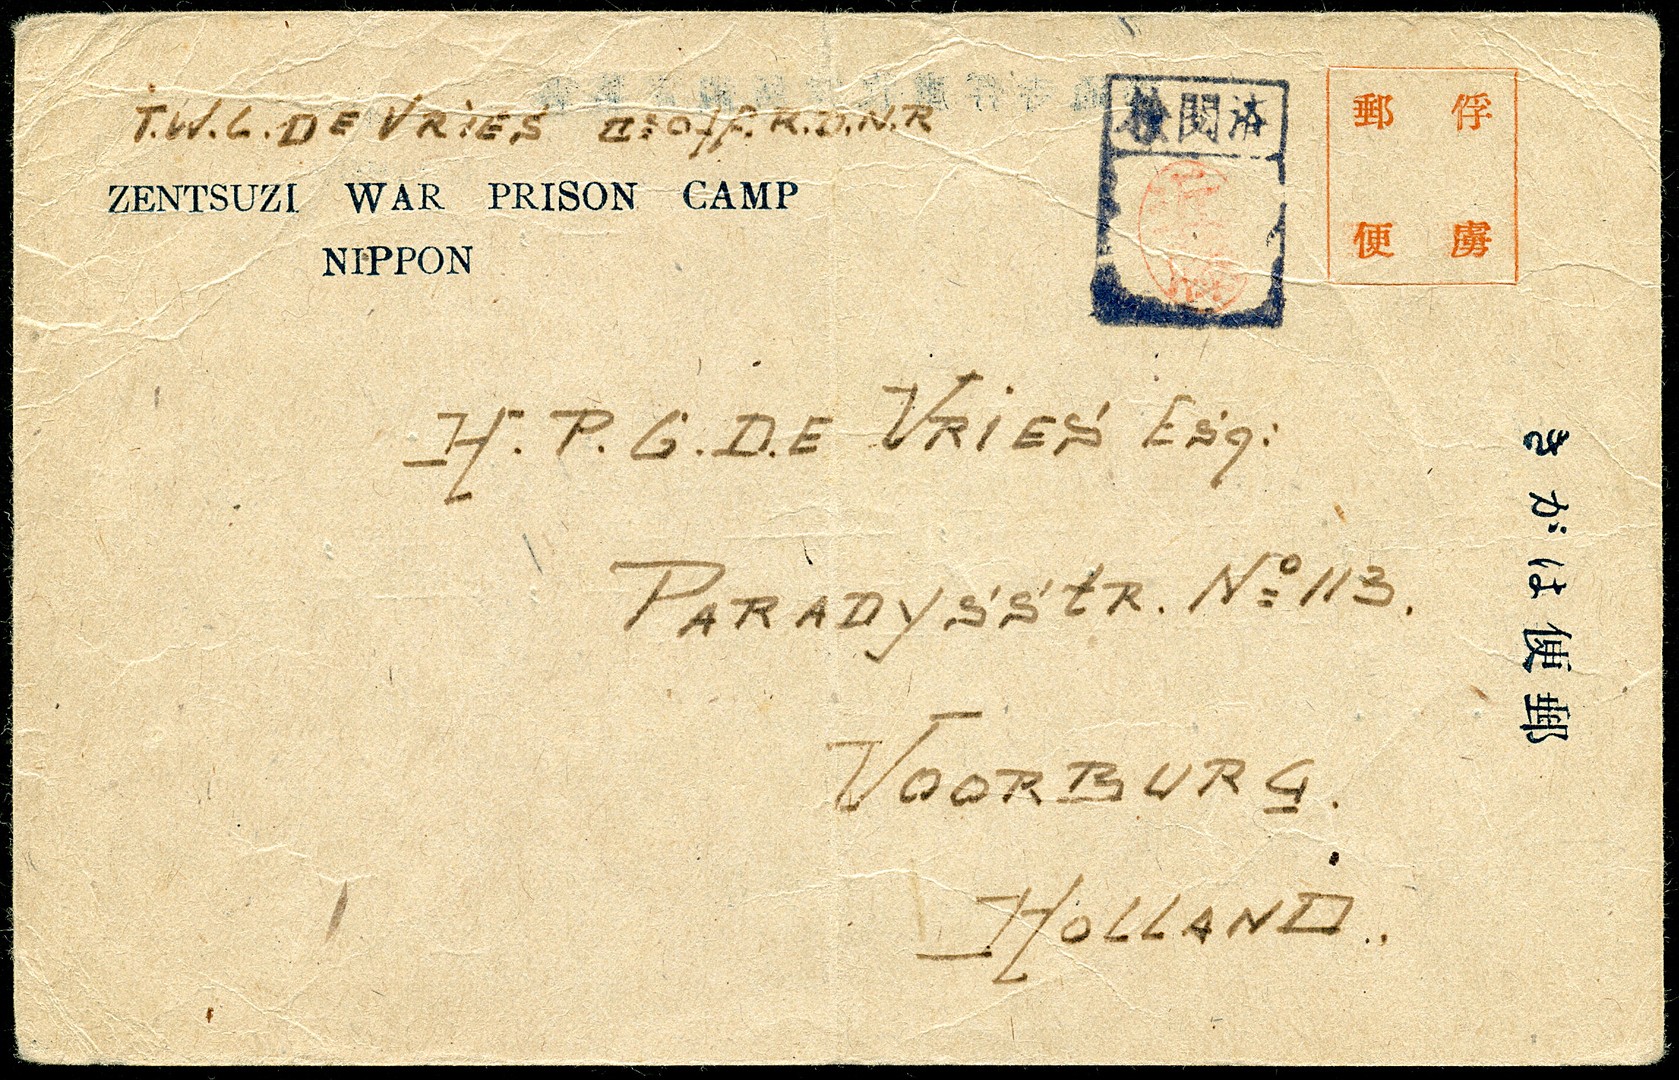 T.W.G. DE VRIES
ZENTSUZI WAR PRISON CAMP
NIPPON
検閲済
俘虜
郵便
H. P. G. DE VRIES Esq:
PARADYSSTR. No 113.
VOORBURG.
HOLLAND..
郵便はがき